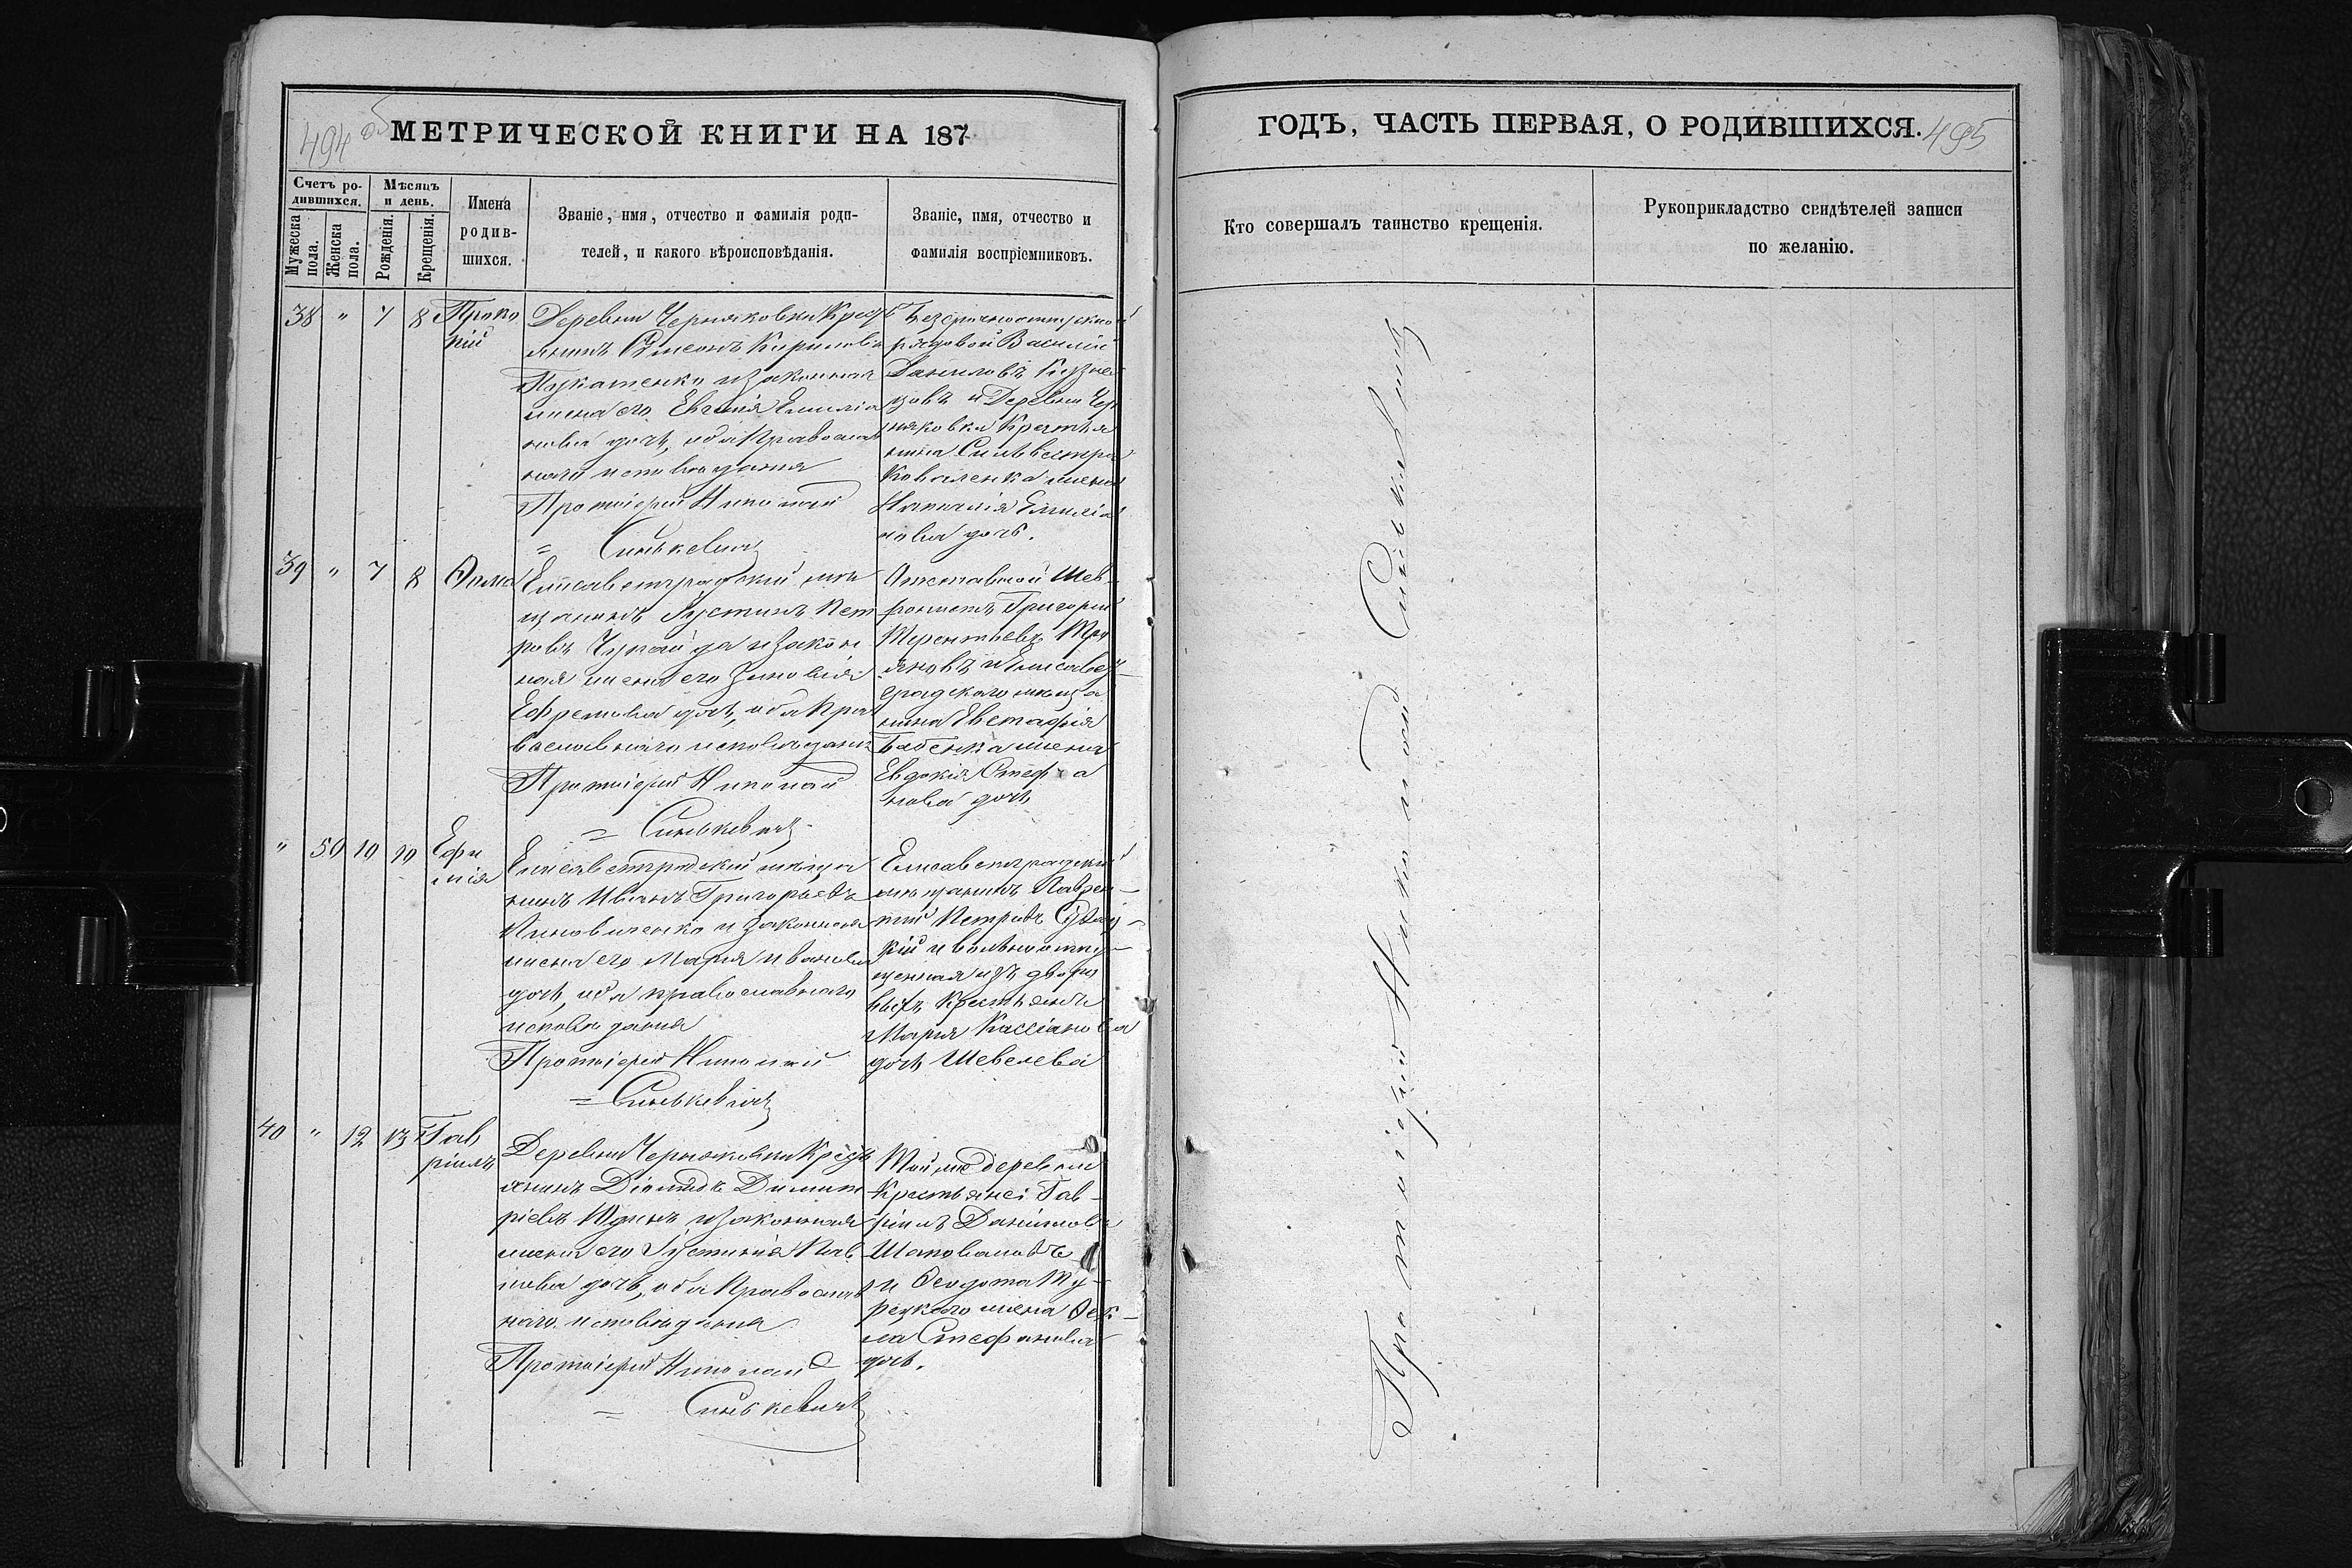 494 об
МЕТРИЧЕСКОЙ КНИГИ НА 187
Счетъ ро-
дившихся.
Мѣсяцъ
и день.
Мужеска
пола.
Женска
пола.
Рожденія.
Крещенія.
Имена
родив-
шихся.
Званіе, имя, отчество и фамилія роди-
телей, и какого вѣроисповѣданія.
Званіе, имя, отчество и
фамилія воспріемниковъ.
38 " 7 8 Проко
пій
Деревни Черняковки Крестъ
янинъ Симеонъ Кирилловъ
и законная
жена его Евгенія Емиліа
нова дочь, оба Православ
наго исповѣданія
Протоіерей Николай
= Синькевичъ
Безсрочноотпускной
рядовой Василій
Даниловъ Кузне
цовъ и Деревни Чер
няковки Крестья
нина Сильвестра
Коваленка жена
Наталія Емиліа
нова дочь.
39 " 7 8 Ѳома
Елисаветградскій мѣ
щанинъ Іустинъ Пет
ровъ и закон
ная жена его Зиновія
Ефремова дочь, оба Пра
вославнаго исповѣданія
Протоіерей Николай
= Синькевичъ
Отставной
Григорій
Терентьевъ
и Елисавет
градскаго мѣща
нина Евстафія
Бабенка жена
Евдокія Стефа
нова дочь
" 50 10 10 Ефи
мія
Елисаветградскій мѣща
нинъ Иванъ Григорьевъ
и законная
жена его Марія Иванова
дочь, оба православнаго
исповѣданія
Протоіерей Николай
= Синькевичъ
Елисаветградскій
мѣщанинъ Лаврен-
тій Петровъ
кій и вольноотпу-
щенная изъ дворо
выхъ Крестьянъ
Марія Кассіанова
дочь Шевелева
40 " 12 13 Гав
ріилъ
Деревни Черняковки Крестъ
янинъ Діомидъ Димит
ріевъ Юдинъ и законная
жена его Іустинія Пав
лова дочь, оба Православ
наго исповѣданія
Протоіерей Николай
= Синькевичъ
Той же деревни
Крестьяне: Гав-
ріилъ Даниловъ
Шаповаловъ
и Ѳеодота Ту-
рецкаго жена Ѳек-
ла Стефанова
дочь.
ГОДЪ, ЧАСТЬ ПЕРВАЯ, О РОДИВШИХСЯ.
495
Кто совершалъ таинство крещенія.
Рукоприкладство свидѣтелей записи
по желанію.
Протоіерей Николай Синькевичъ